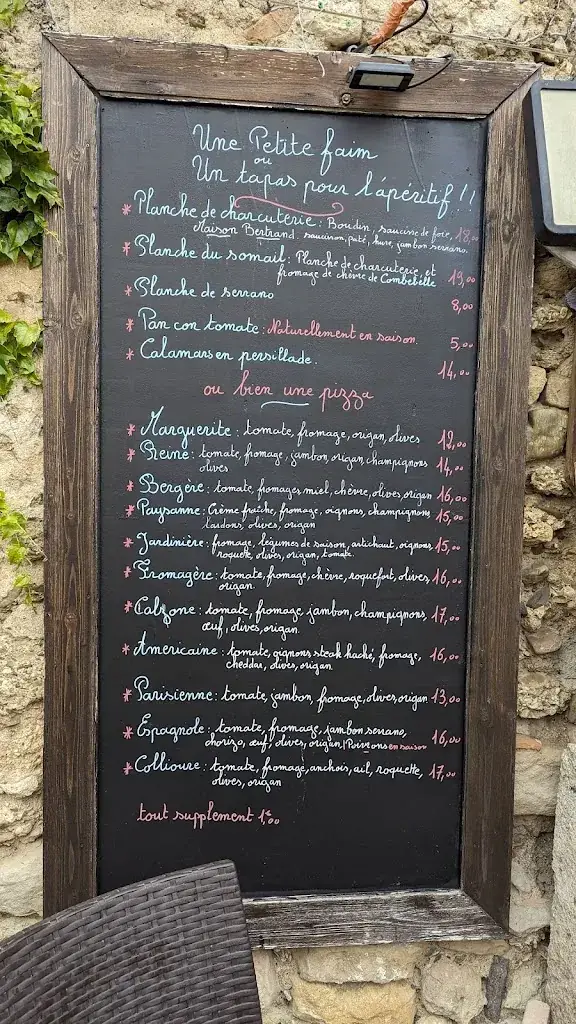 Une Petite faim
ou
Un tapas pour l'apéritif !!
* Planche de charcuterie : Boudin, saucisse de foie, 18,00
Maison Bertrand. saucisson, paté, hure, jambon serrano.
* Planche du somail : Planche de charcuterie, et
fromage de chèvre de Combebelle 19,00
* Planche de serrano 8,00
* Pan con tomate : Naturellement en saison. 5,00
* Calamars en persillade. 14,00
ou bien une pizza
* Marguerite : tomate, fromage, origan, olives 12,00
* Reine : tomate, fromage, jambon, origan, champignons 14,00
olives
* Bergère : tomate, fromages, miel, chèvre, olives, origan 16,00
* Paysanne : Crème fraîche, fromage, oignons, champignons, 15,00
lardons, olives, origan
* Jardinière : fromage, légumes de saison, artichaut, oignons, 15,00
roquette, olives, origan, tomate.
* Fromagère : tomate, fromage, chèvre, roquefort, olives, 16,00
origan.
* Calzone : tomate, fromage, jambon, champignons, 17,00
œuf, olives, origan.
* Américaine : tomate, oignons, steak haché, fromage, 16,00
cheddar, olives, origan
* Parisienne : tomate, jambon, fromage, olives, origan 13,00
* Espagnole : tomate, fromage, jambon serrano, 16,00
chorizo, œuf, olives, origan, Poivrons en saison
* Collioure : tomate, fromage, anchois, ail, roquette, 17,00
olives, origan
tout supplement 1€00